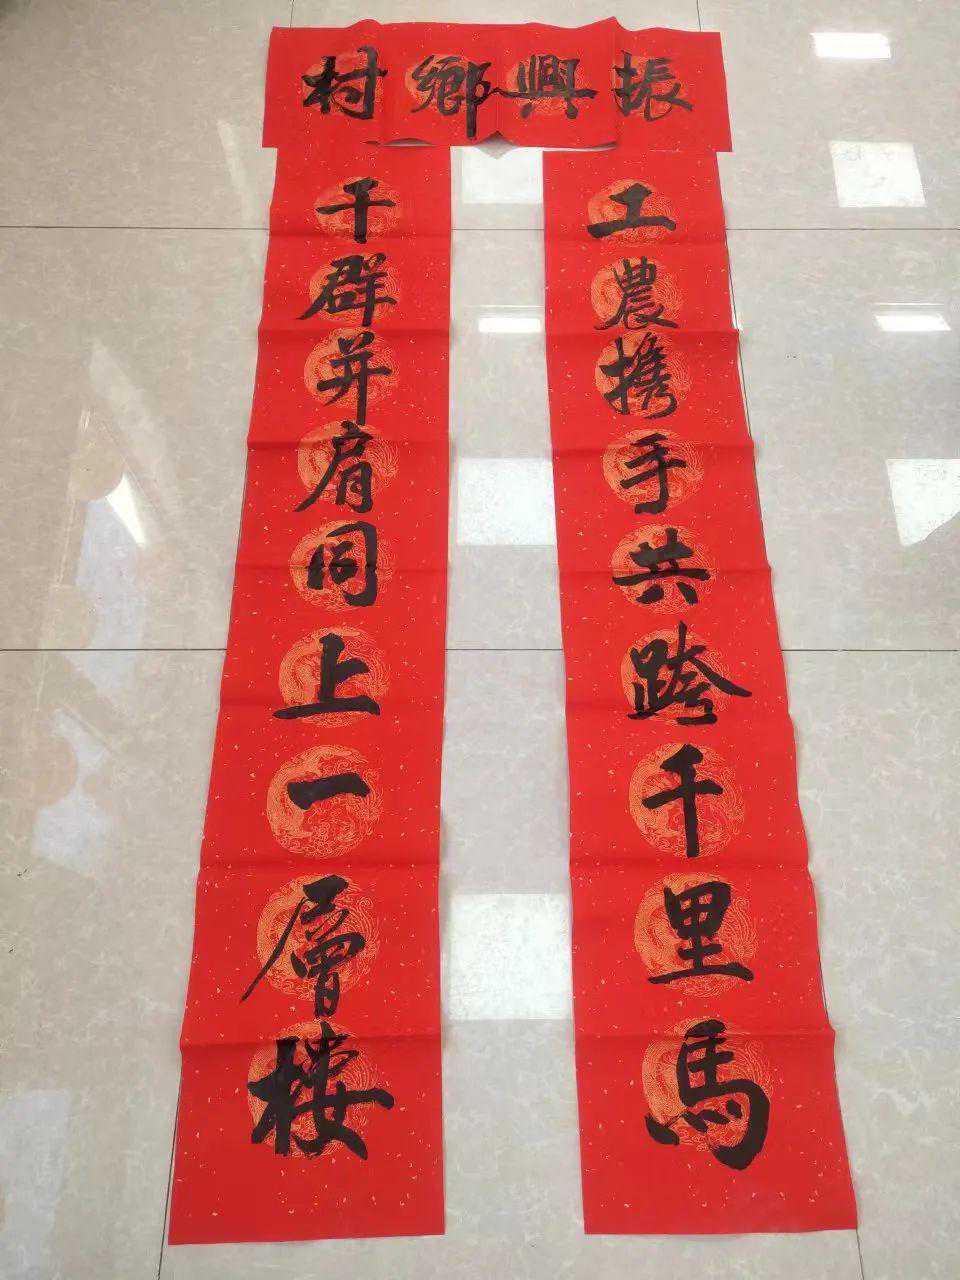 振興鄉村
工農携手共跨千里馬
干群并肩同上一層楼